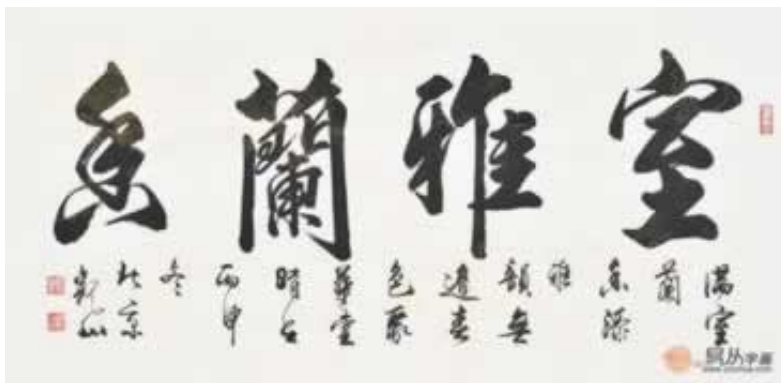 室雅蘭香
滿室
蘭
香添
雅
韻無
邊春
色聚
華堂
時在
丙申
冬
北京
易从字画